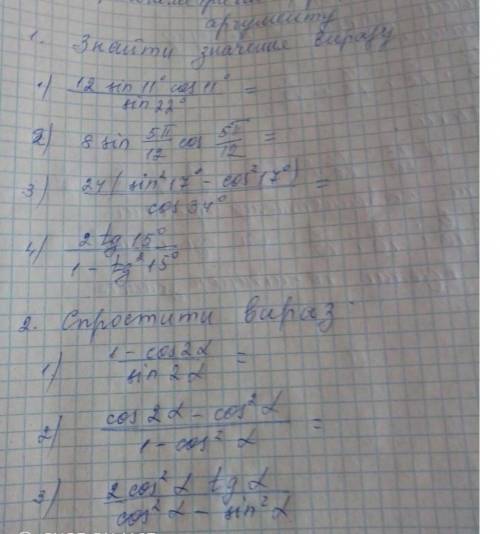 аргументу
1. Знайти значение виразу
1) 12 sin 11° cos 11° / sin 22° =
2) 8 sin 5π/12 cos 5π/12 =
3) 24 ( sin² 17° - cos² 17° ) / cos 34° =
4) 2 tg 15° / 1 - tg² 15°
2. Спростити вираз
1) 1 - cos 2α / sin 2α =
2) cos 2α - cos² α / 1 - cos² α =
3) 2 cos² α tg α / cos² α - sin² α